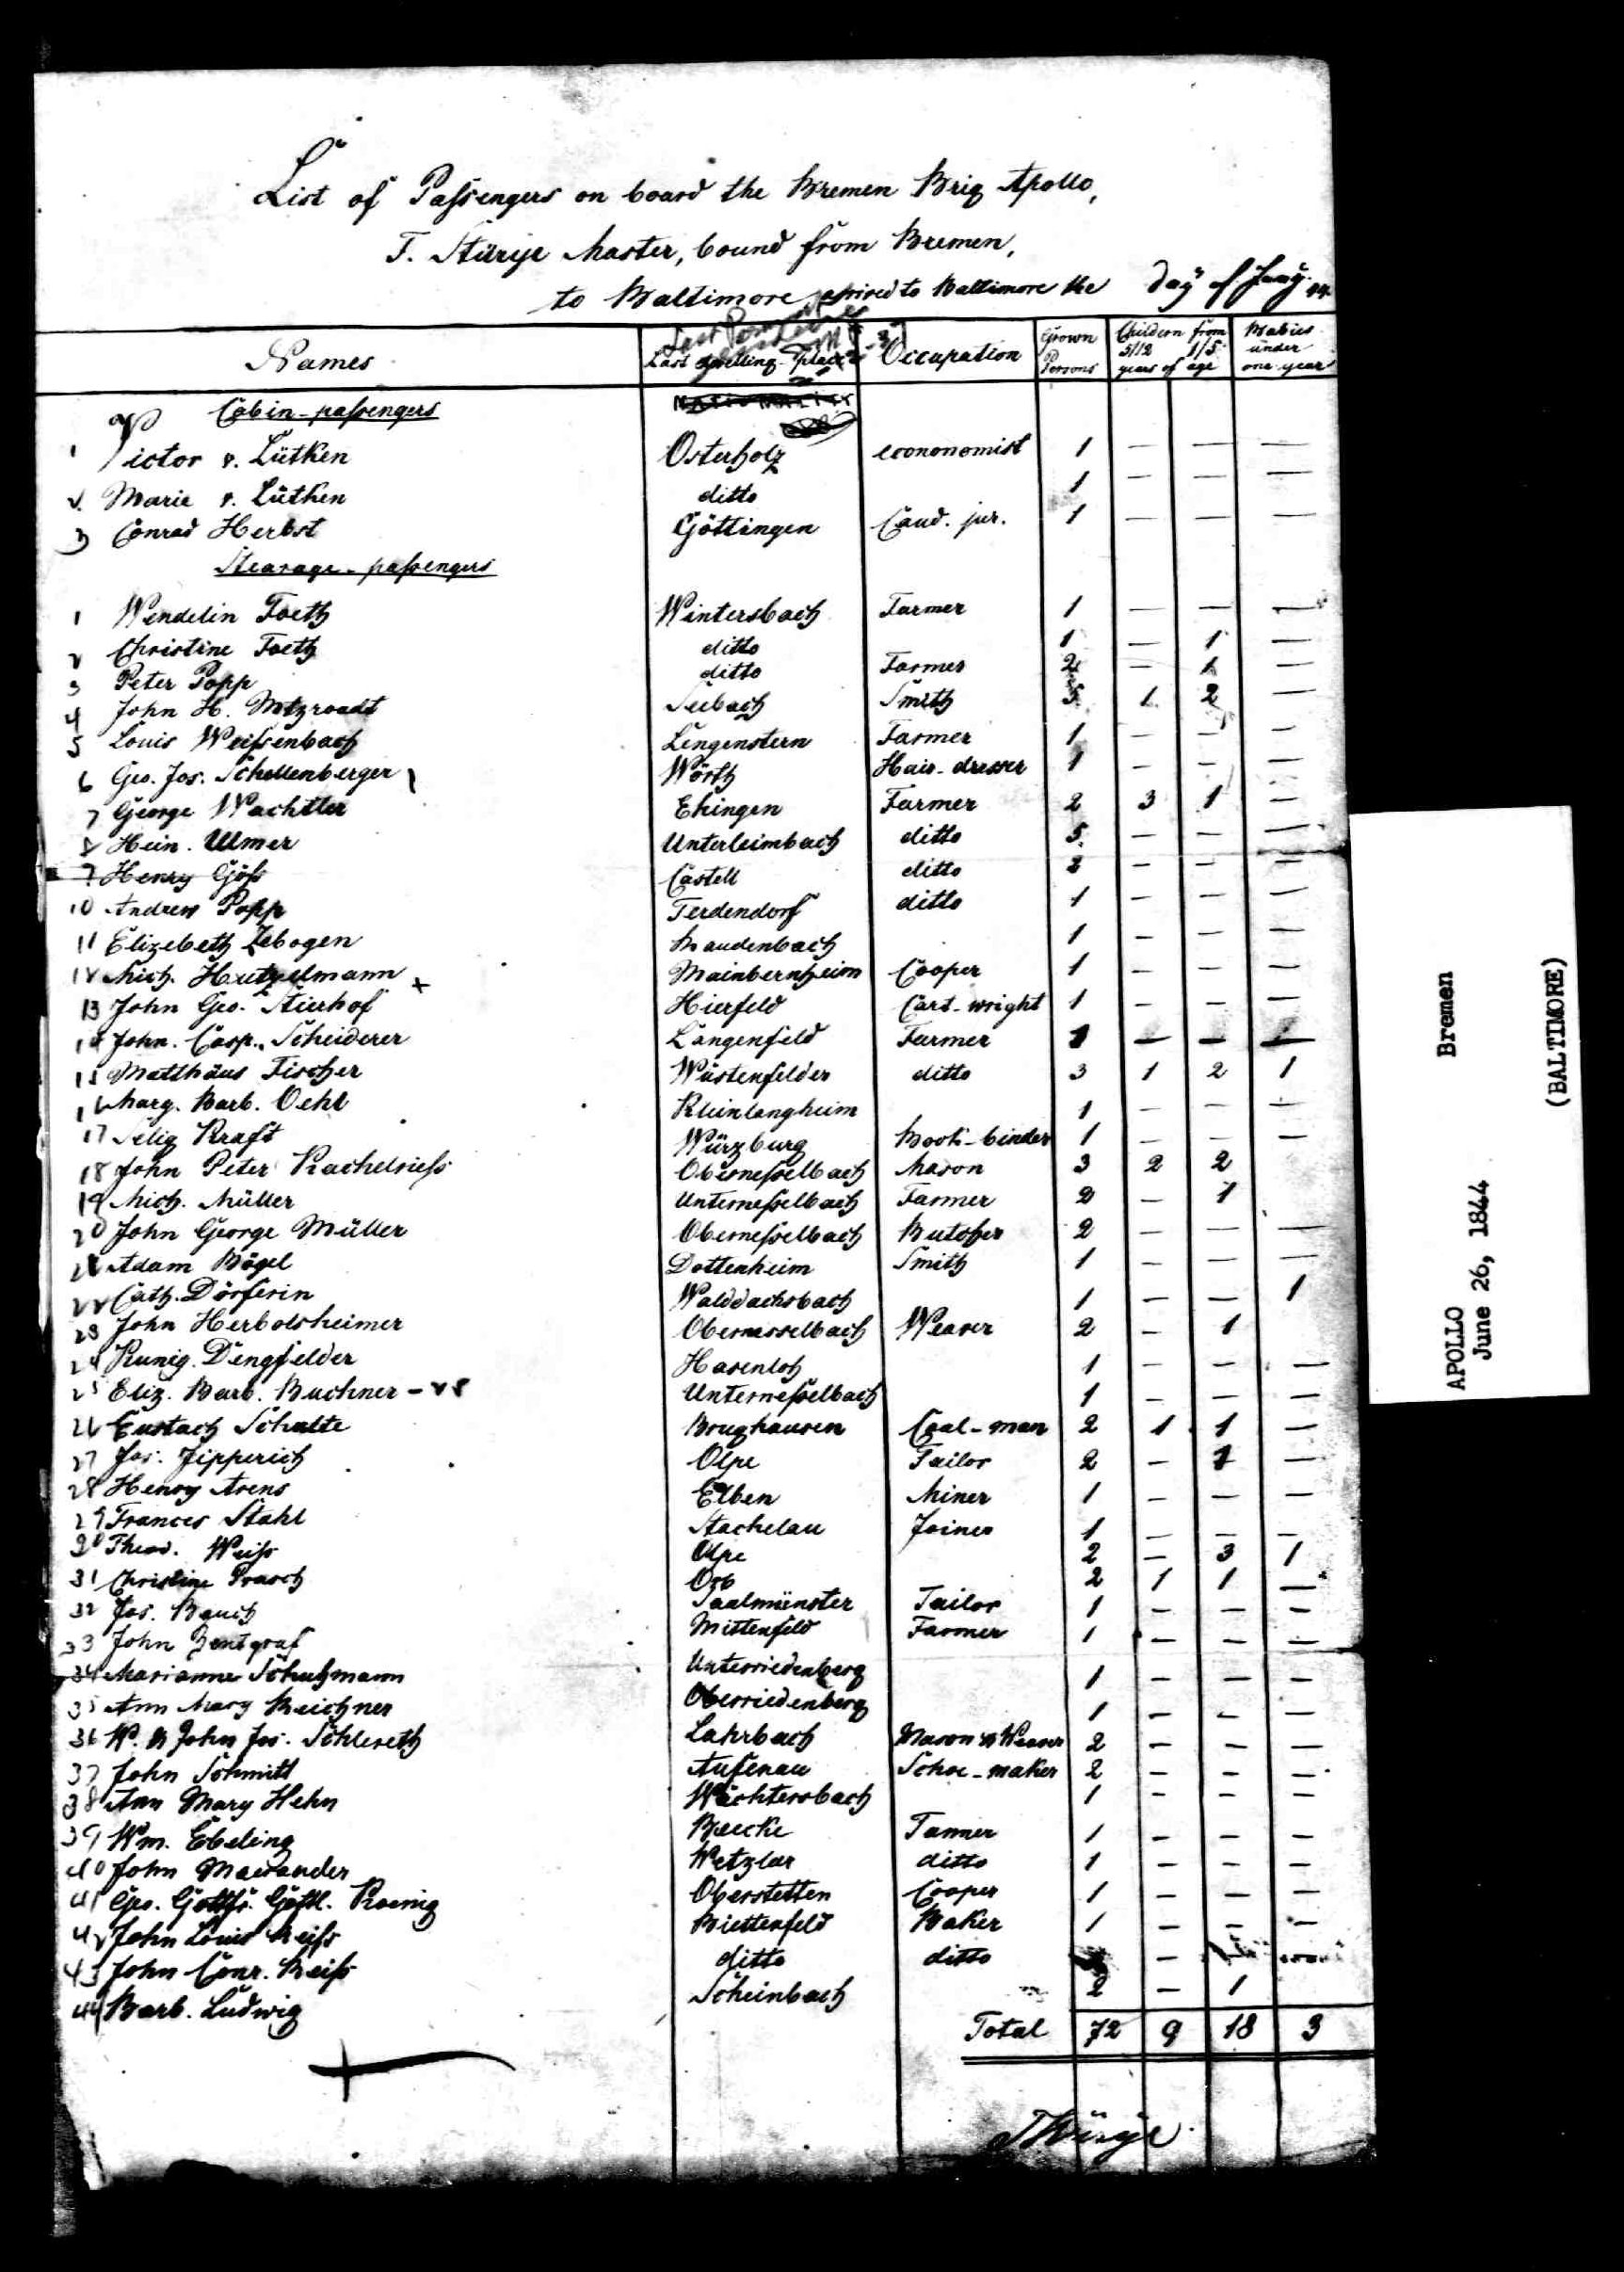 List of Passengers on board the Bremen Brig Apollo,
T. Stürje Master, bound from Bremen,
to Baltimore arrived to Baltimore the day of Jany. 44
Names Last dwelling-place Occupation Grown Persons Childern from 5/12 1/5 years of age Babies under one year
Cabin-passengers
1 Victor v. Lütken Osterholz econonomist 1 — — —
2 Marie v. Lütken ditto 1 — — —
3 Conrad Herbst Göttingen Cand. jur. 1 — — —
Stearage-passengers
1 Wendelin Foeth Wintersbach Farmer 1 — — —
2 Christine Foeth ditto 1 — 1 —
3 Peter Popp ditto Farmer 2 — 1 —
4 John H. Seebach Smith 1 2 —
5 Louis Weissenbach Lengenstern Farmer 1 — — —
6 Geo. Jos. Schellenberger Wörth Hair-dresser 1 — — —
7 George Wachtler Ehingen Farmer 2 3 1 —
8 Hein. Ulmer Unterleimbach ditto 5 — — —
9 Henry Göss Castell ditto 2 — — —
10 Andrew Popp Ferdendorf ditto 1 — — —
11 Elizebeth Zebogen Maudenbach 1 — — —
12 Mich. Hutzelmann + Mainbernheim Cooper 1 — — —
13 John Geo. Stierhof Hierfeld Cart-wright 1 — — —
14 John. Casp. Scheiderer Langenfeld Farmer 1 — — —
15 Matthäus Fischer Wüstenfelder ditto 3 1 2 1
16 Marg. Barb. Oehl Kleinlangheim 1 — — —
17 Selig Kraft Würzburg Book-binder 1 — — —
18 John Peter Rachelriess Obernesselbach Mason 3 2 2
19 Mich. Müller Unternesselbach Farmer 2 — 1
20 John George Müller Obernesselbach Butcher 2 — — —
21 Adam Bögel Dottenheim Smith 1 — — —
22 Cath. Dörferin Walddachsbach 1 — — 1
23 John Herbolsheimer Obernesselbach Weaver 2 — 1
24 Kunig. Dengfelder Hasenloh 1 — — —
25 Eliz. Barb. Buchner Unternesselbach 1 — — —
26 Eustach Schulte Brughausen Coal-man 2 1 1 —
27 Jos. Jipperich Olpe Tailor 2 — 1 —
28 Henry Arens Elben Miner 1 — — —
29 Frances Stahl Stachelau Joiner 1 — — —
30 Theod. Weiss Olpe 2 — 3 1
31 Christine Prasch Orb 2 1 1 —
32 Jos. Bauch Saalmünster Tailor 1 — — —
33 John Zentgraf Mittenfeld Farmer 1 — — —
34 Marianne Schutzmann Unterriedenberg 1 — — —
35 Ann Mary Reichner Oberriedenberg 1 — — —
36 W. & John Jos. Schlereth Lahrbach Mason & Weaver 2 — — —
37 John Schmitt Aufenau Schoe-maker 2 — — —
38 Ann Mary Hehn Wächtersbach 1 — — —
39 Wm. Ebeling Beecke Tanner 1 — — —
40 John Mairander Wetzlar ditto 1 — — —
41 Geo. Gottfr. Gottl. Koenig Oberstetten Cooper 1 — — —
42 John Louis Reiss Biettenfeld Baker 1 — — —
43 John Conr. Reiss ditto ditto —
44 Barb. Ludwig Scheinbach 2 — 1
Total 72 9 18 3
TStürje
APOLLO Bremen
June 26, 1844 (BALTIMORE)